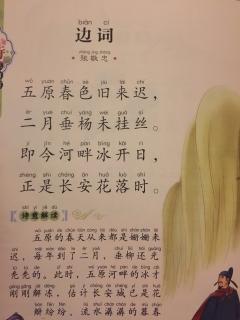 biān cí
边词
zhāng jìng zhōng
张敬忠
wǔ yuán chūn sè jiù lái chí
五原春色旧来迟，
èr yuè chuí yáng wèi guà sī
二月垂杨未挂丝。
jí jīn hé pàn bīng kāi rì
即今河畔冰开日，
zhèng shì cháng ān huā luò shí
正是长安花落时。
shī yì jiě dú
诗意解读
五原的春天从来都是姗姗来
迟，每年到了二月，垂柳还光
秃秃的。此时，五原河畔的冰才
刚刚解冻，估计长安城已是花
瓣纷纷、流水潺潺的暮春